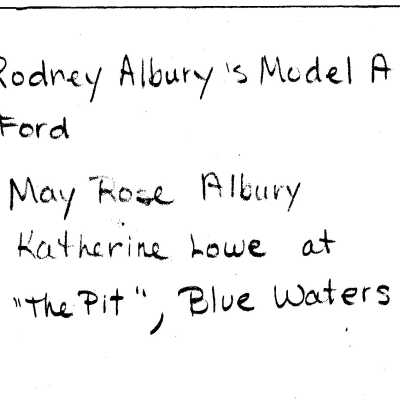 Rodney Albury's Model A
Ford
May Rose Albury
Katherine Lowe at
"The Pit", Blue Waters